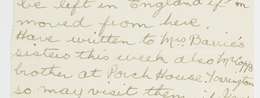 be left in England if I'm
moved from here.
Have written to Mrs Barrie's
sisters this week also
brother at Porch House Torrington
so may visit them if